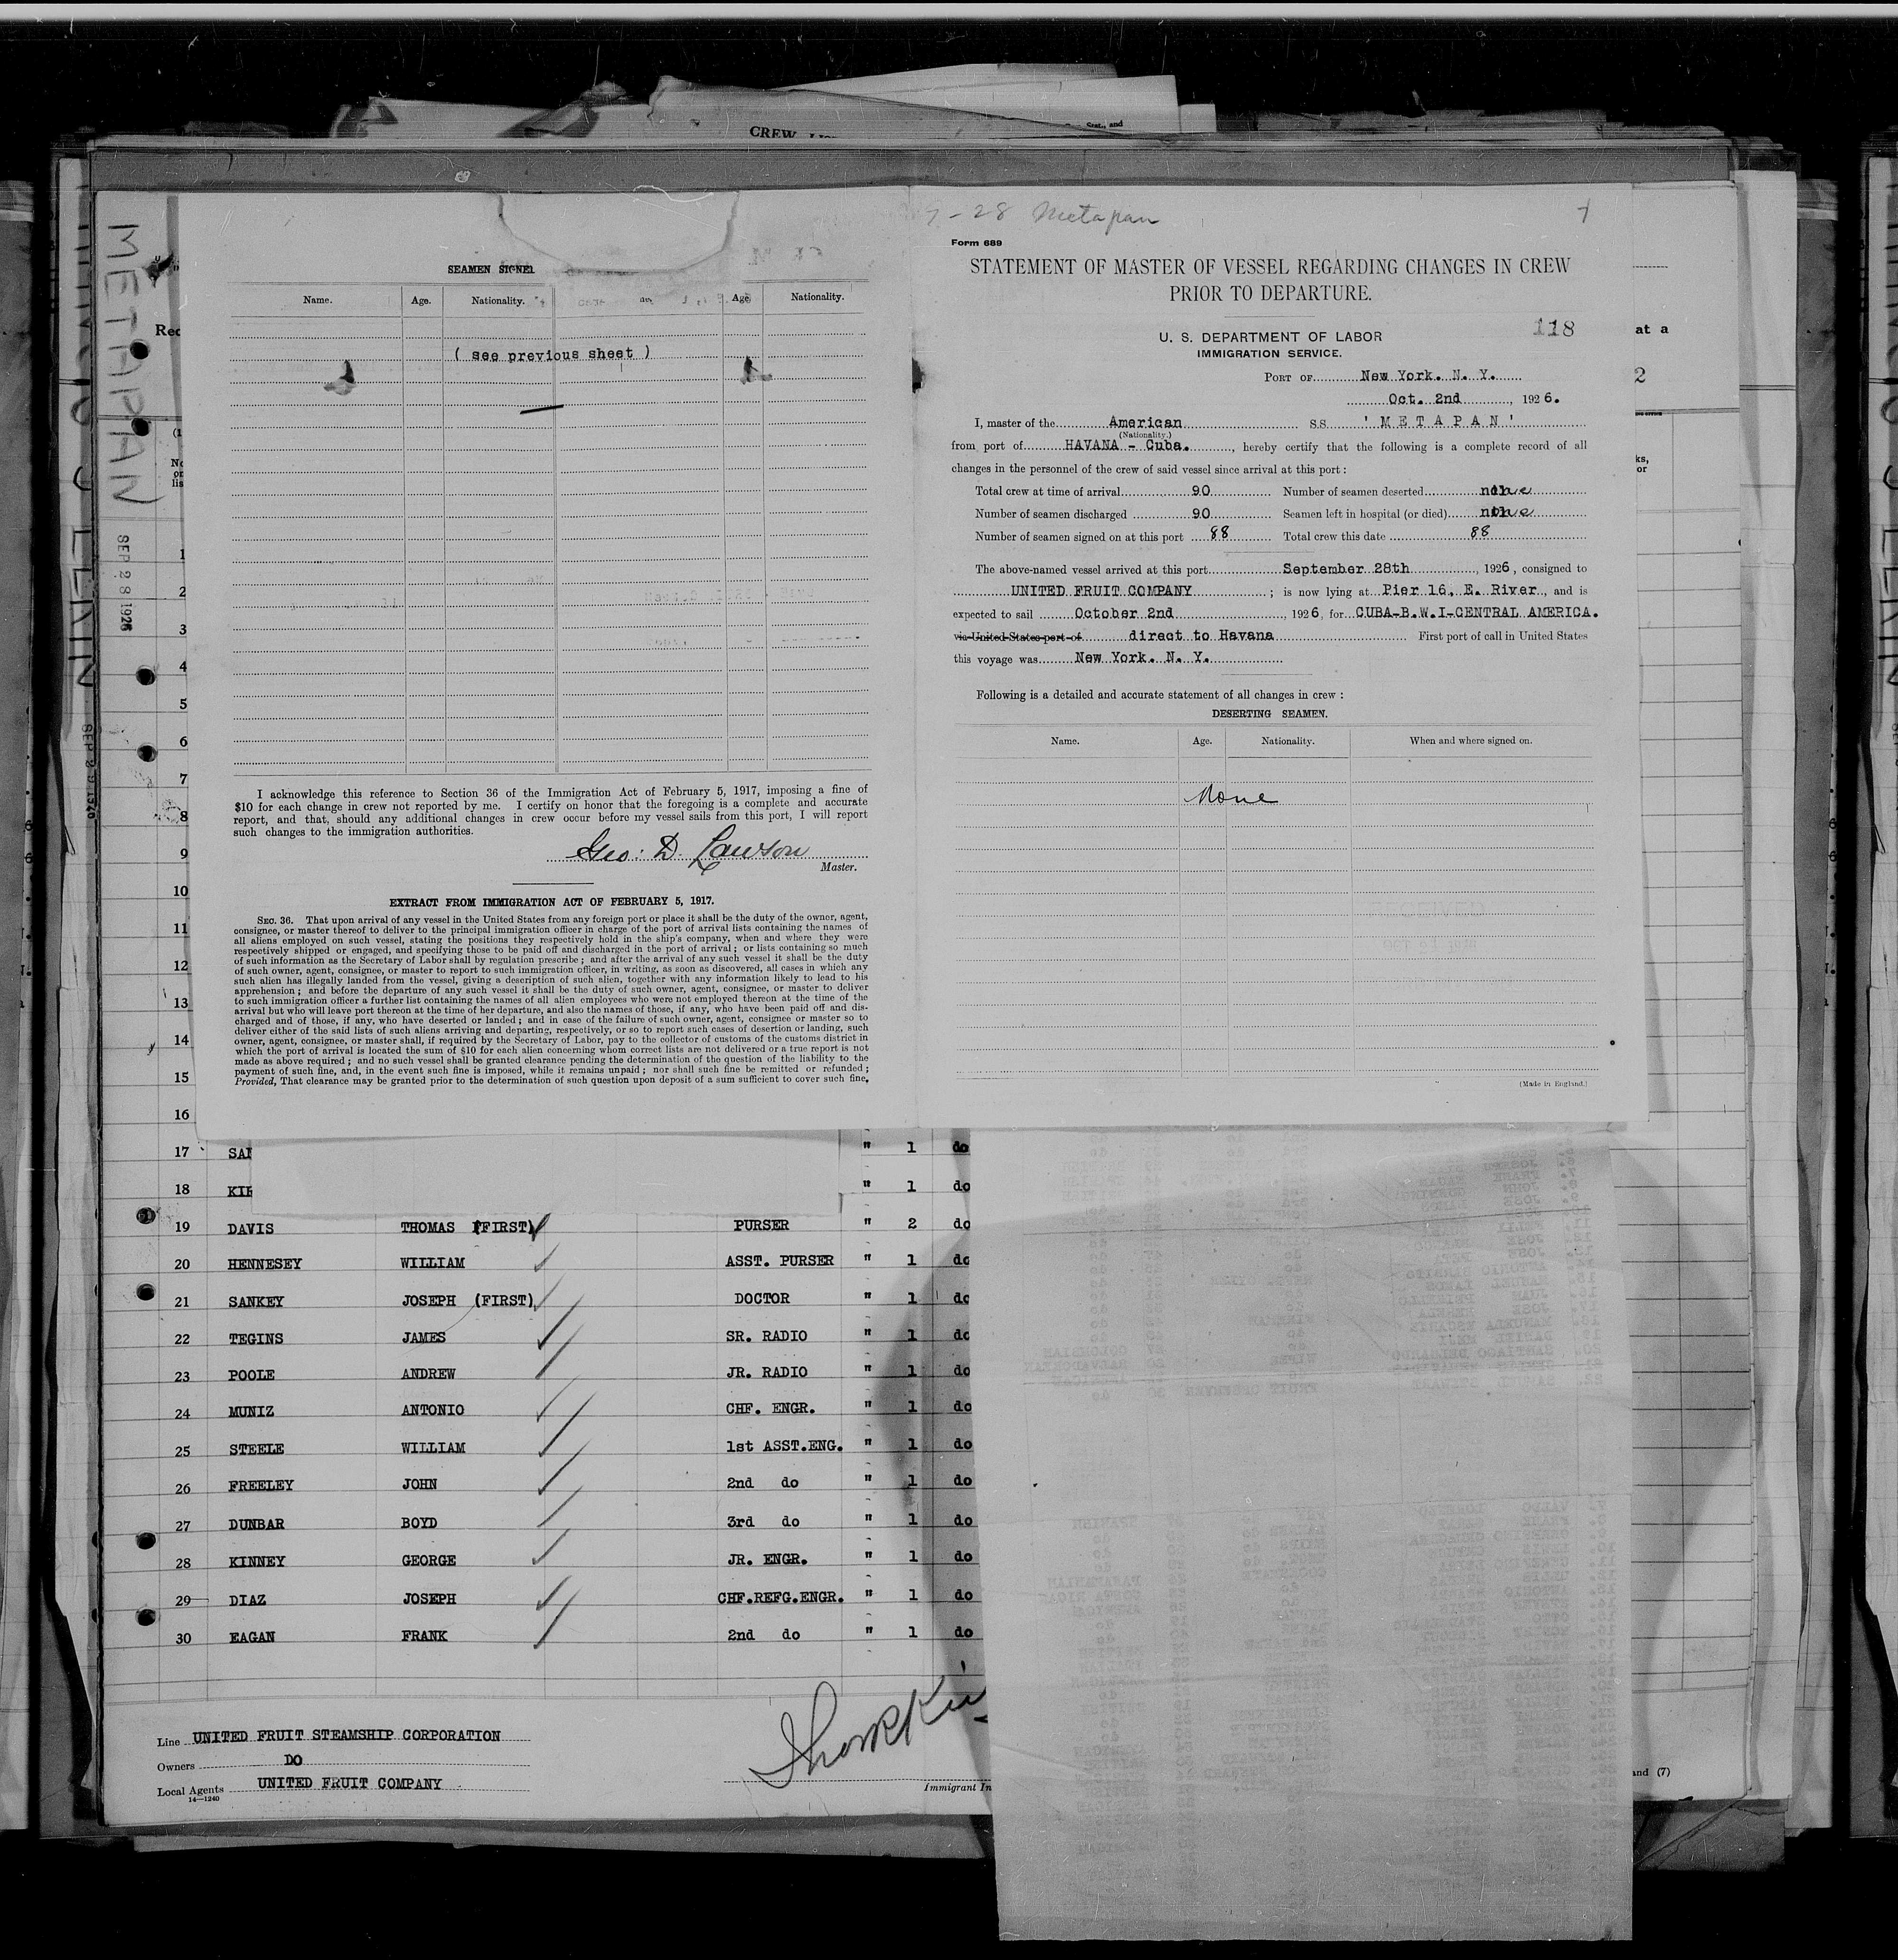 CREW
Stat., and
METAPAN
SEP 28 1926
7-28 Metapan
SEAMEN SIGNED
Name. Age. Nationality. Age. Nationality.
( see previous sheet )
I acknowledge this reference to Section 36 of the Immigration Act of February 5, 1917, imposing a fine of
$10 for each change in crew not reported by me. I certify on honor that the foregoing is a complete and accurate
report, and that, should any additional changes in crew occur before my vessel sails from this port, I will report
such changes to the immigration authorities.
Geo. D. Lawson
Master.
EXTRACT FROM IMMIGRATION ACT OF FEBRUARY 5, 1917.
SEC. 36. That upon arrival of any vessel in the United States from any foreign port or place it shall be the duty of the owner, agent,
consignee, or master thereof to deliver to the principal immigration officer in charge of the port of arrival lists containing the names of
all aliens employed on such vessel, stating the positions they respectively hold in the ship's company, when and where they were
respectively shipped or engaged, and specifying those to be paid off and discharged in the port of arrival; or lists containing so much
of such information as the Secretary of Labor shall by regulation prescribe; and after the arrival of any such vessel it shall be the duty
of such owner, agent, consignee, or master to report to such immigration officer, in writing, as soon as discovered, all cases in which any
such alien has illegally landed from the vessel, giving a description of such alien, together with any information likely to lead to his
apprehension; and before the departure of any such vessel it shall be the duty of such owner, agent, consignee, or master to deliver
to such immigration officer a further list containing the names of all alien employees who were not employed thereon at the time of the
arrival but who will leave port thereon at the time of her departure, and also the names of those, if any, who have been paid off and dis-
charged and of those, if any, who have deserted or landed; and in case of the failure of such owner, agent, consignee or master so to
deliver either of the said lists of such aliens arriving and departing, respectively, or so to report such cases of desertion or landing, such
owner, agent, consignee, or master shall, if required by the Secretary of Labor, pay to the collector of customs of the customs district in
which the port of arrival is located the sum of $10 for each alien concerning whom correct lists are not delivered or a true report is not
made as above required; and no such vessel shall be granted clearance pending the determination of the question of the liability to the
payment of such fine, and, in the event such fine is imposed, while it remains unpaid; nor shall such fine be remitted or refunded;
Provided, That clearance may be granted prior to the determination of such question upon deposit of a sum sufficient to cover such fine.
Form 689
STATEMENT OF MASTER OF VESSEL REGARDING CHANGES IN CREW
PRIOR TO DEPARTURE.
118
U. S. DEPARTMENT OF LABOR
IMMIGRATION SERVICE.
PORT OF New York. N. Y.
Oct. 2nd, 1926.
I, master of the American SS 'METAPAN'
(Nationality.)
from port of HAVANA - Cuba., hereby certify that the following is a complete record of all
changes in the personnel of the crew of said vessel since arrival at this port:
Total crew at time of arrival 90 Number of seamen deserted none
Number of seamen discharged 90 Seamen left in hospital (or died) none
Number of seamen signed on at this port 88 Total crew this date 88
The above-named vessel arrived at this port September 28th, 1926, consigned to
UNITED FRUIT COMPANY; is now lying at Pier 16, E. River, and is
expected to sail October 2nd, 1926, for CUBA-B.W.I-CENTRAL AMERICA.
via United States port of direct to Havana First port of call in United States
this voyage was New York. N. Y.
Following is a detailed and accurate statement of all changes in crew:
DESERTING SEAMEN.
Name. Age. Nationality. When and where signed on.
None
(Made in England.)
1
2
3
4
5
6
7
8
9
10
11
12
13
14
15
16
17 " 1 do
18 " 1 do
19 DAVIS THOMAS (FIRST) PURSER " 2 do
20 HENNESEY WILLIAM ASST. PURSER " 1 do
21 SANKEY JOSEPH (FIRST) DOCTOR " 1 do
22 TEGINS JAMES SR. RADIO " 1 do
23 POOLE ANDREW JR. RADIO " 1 do
24 MUNIZ ANTONIO CHF. ENGR. " 1 do
25 STEELE WILLIAM 1st ASST.ENG. " 1 do
26 FREELEY JOHN 2nd do " 1 do
27 DUNBAR BOYD 3rd do " 1 do
28 KINNEY GEORGE JR. ENGR. " 1 do
29 DIAZ JOSEPH CHF.REFG.ENGR. " 1 do
30 EAGAN FRANK 2nd do " 1 do
Line UNITED FRUIT STEAMSHIP CORPORATION
Owners DO
Local Agents UNITED FRUIT COMPANY
14-1240
Immigrant In
and (7)